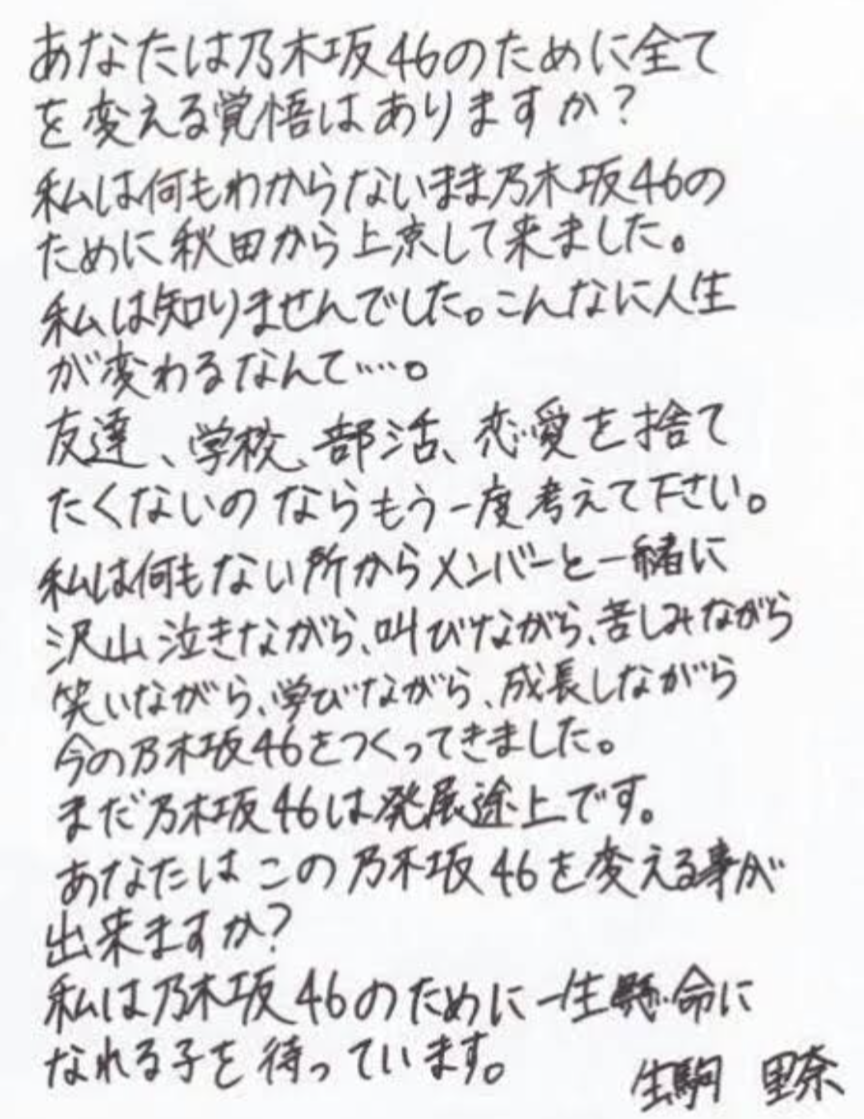 あなたは乃木坂46のために全て
を変える覚悟はありますか?
私は何もわからないまま乃木坂46の
ために秋田から上京して来ました。
私は知りませんでした。こんなに人生
が変わるなんて…。
友達、学校、部活、恋愛を捨て
たくないのならもう一度考えて下さい。
私は何もない所からメンバーと一緒に
沢山泣きながら、叫びながら、苦しみながら
笑いながら、学びながら、成長しながら
今の乃木坂46をつくってきました。
まだ乃木坂46は発展途上です。
あなたはこの乃木坂46を変える事が
出来ますか?
私は乃木坂46のために一生懸命に
なれる子を待っています。
生駒 里奈